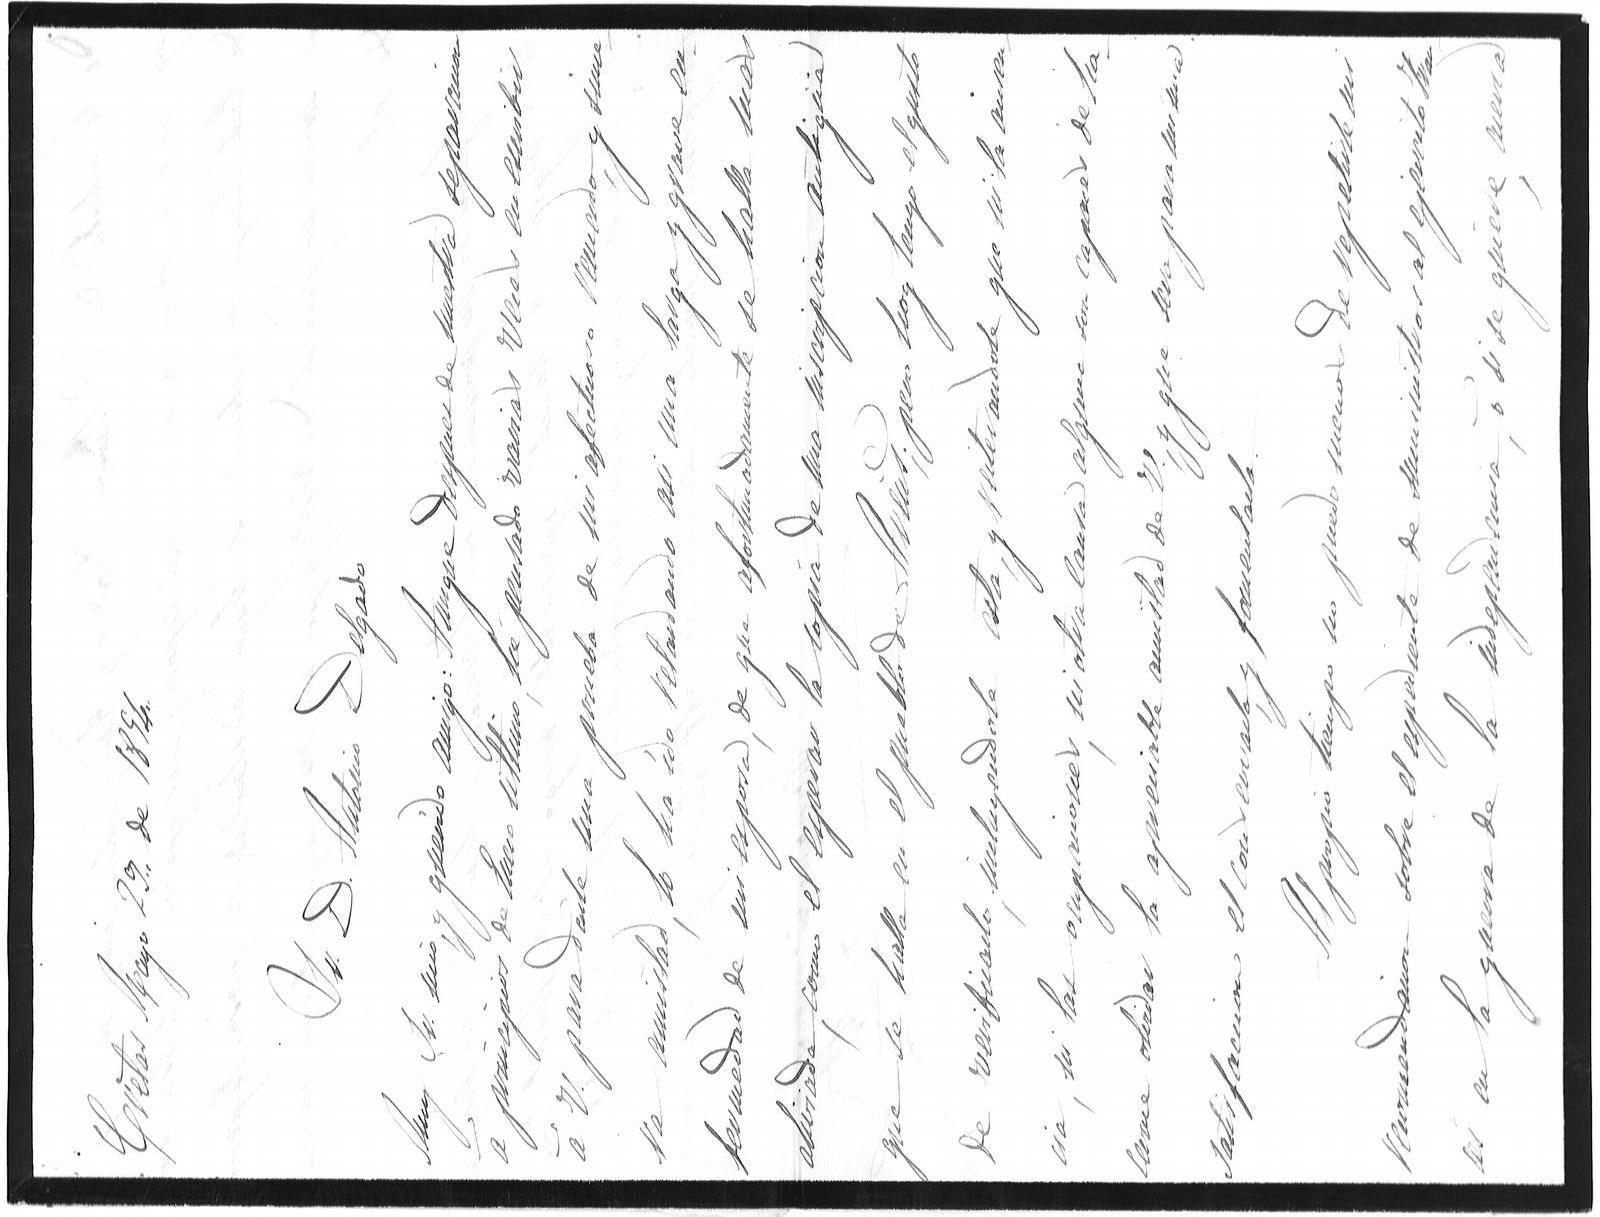 Cretas Mayo 23. de 1894.
Sr. D. Antonio Delgado
Muy Sr. mio y querido amigo: Aunque despues de nuestra separacion
a principios de Enero último, he pensado varias veces en escribir
á V. para darle una prueba de mi afectuoso recuerdo y since
ra amistad, lo ha ido retardando asi una larga y grave en
fermedad de mi esposa, de que afortunadamente se halla mas
aliviada, como el esperar la copia de una inscripcion antigua
que se halla en el pueblo de pero hoy tengo el gusto
de verificarlo, incluyendole esta y reiterandole que ni la ausen
cia, ni las ocupaciones, ni otra causa alguna son capaces de ha
cerme olvidar la apreciable amistad de V. y que sera para mi una
satisfaccion el conservarla y fomentarla.
Al propio tiempo no puedo menos de repetirle mi
recomendacion sobre el espediente de suministros al ejercito
en la guerra de la independencia, ó si se quiere, una